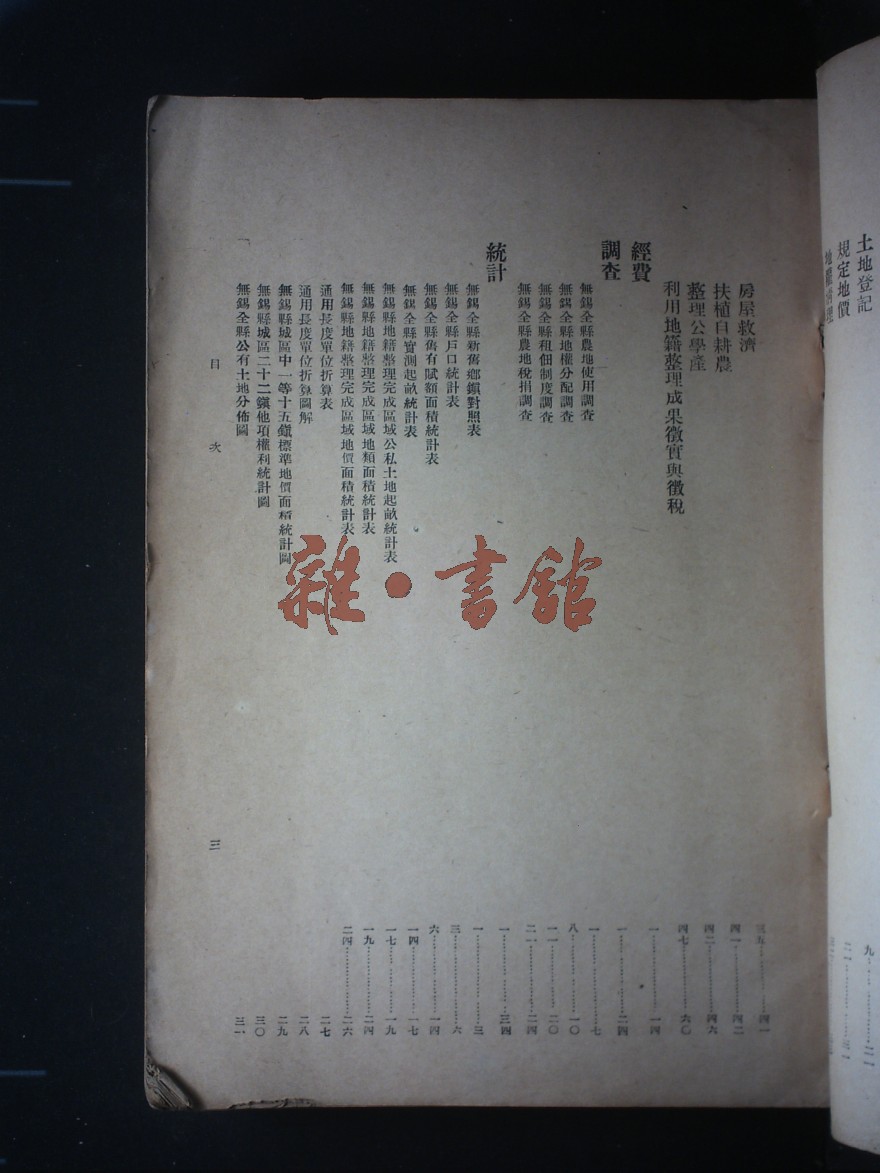 土地登記
九……
規定地價
房屋救濟
三五……四一
扶植自耕農
四一……四二
整理公學產
四二……四六
利用地籍整理成果徵實與徵稅
四七……六〇
經費
一……一四
調查
一……二四
無錫全縣農地使用調查
一……七
無錫全縣地權分配調查
八……一〇
無錫全縣租佃制度調查
一一……二〇
無錫全縣農地稅捐調查
二一……二四
統計
一……三四
無錫全縣新舊鄉鎭對照表
一……三
無錫全縣戶口統計表
三……六
無錫全縣舊有賦額面積統計表
六……一四
無錫全縣實測起畝統計表
一四……一七
無錫縣地籍整理完成區域公私土地起畝統計表
一七……一九
無錫縣地籍整理完成區域地類面積統計表
一九……二四
無錫縣地籍整理完成區域地價面積統計表
二四……二六
通用長度單位折算表
二七
通用長度單位折算圖解
二八
無錫縣城區中一等十五鎭標準地價面積統計圖
二九
無錫縣城區二十二鎭他項權利統計圖
三〇
無錫全縣公有土地分佈圖
三一
目次
三
雜·書館